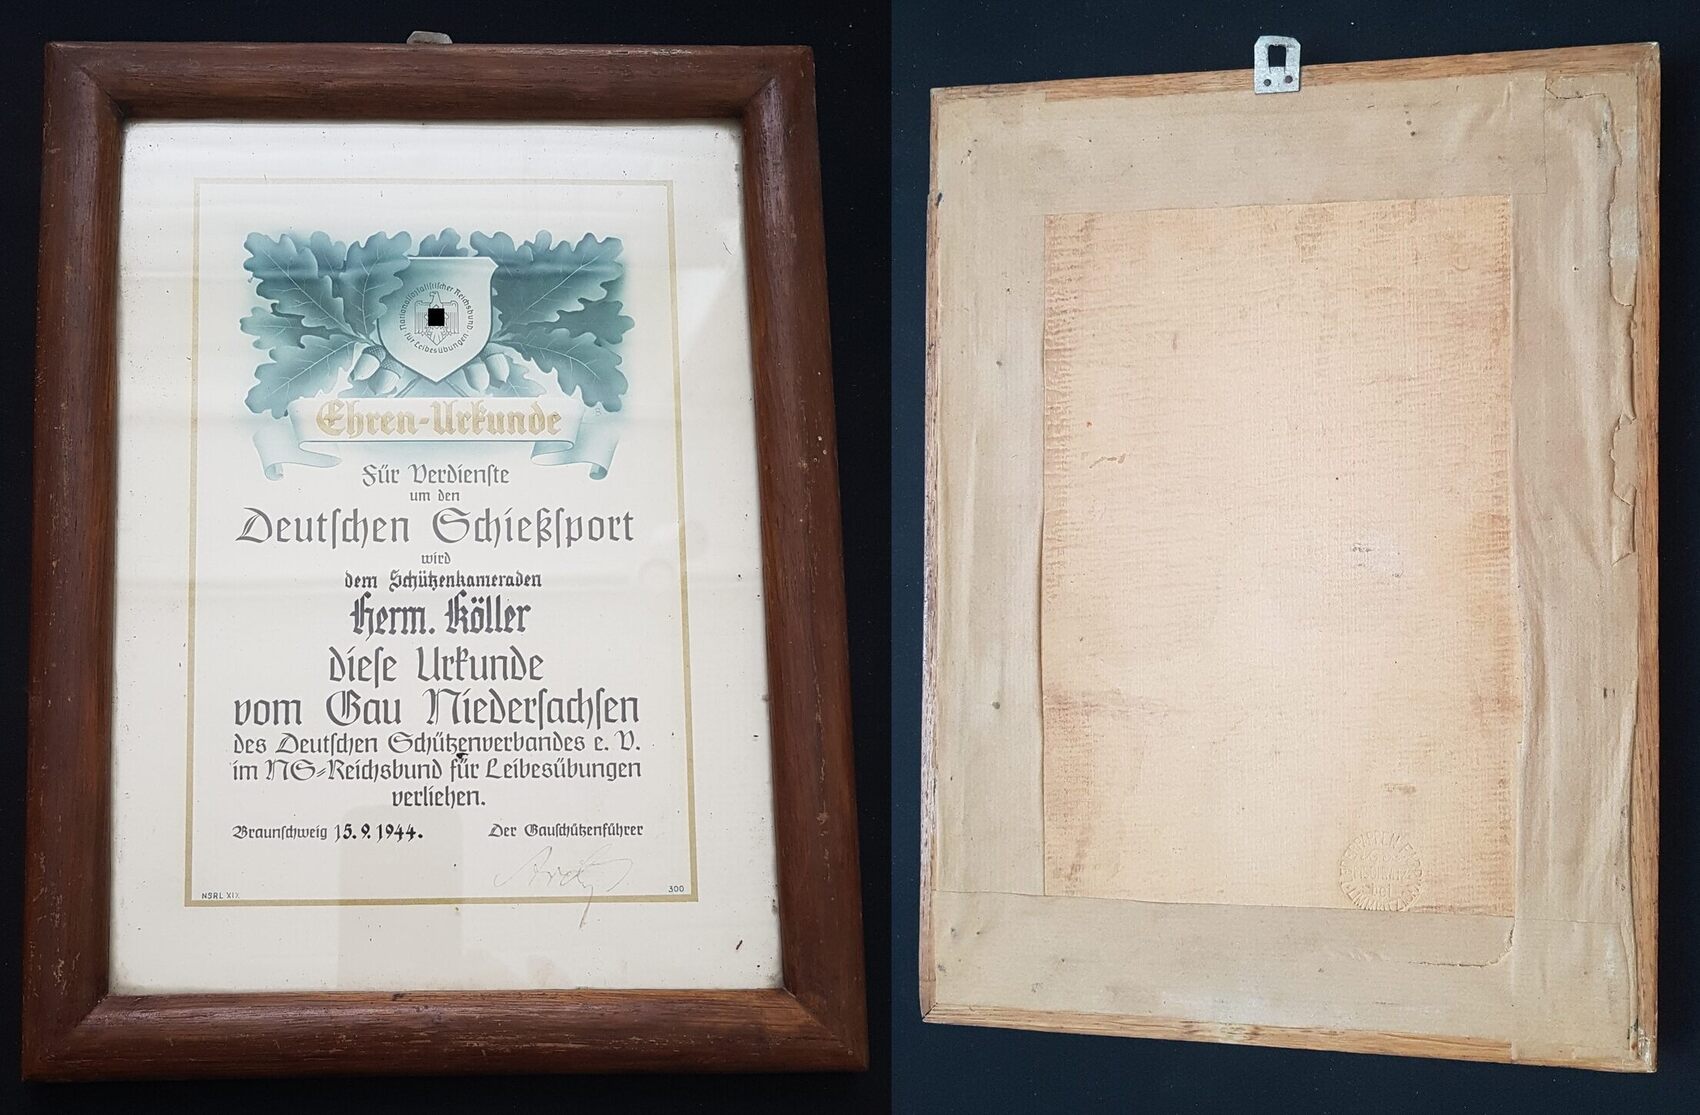 Nationalsozialistischer Reichsbund
für Leibesübungen
Ehren-Urkunde
Für Verdienste
um den
Deutschen Schießsport
wird
dem Schützenkameraden
Herm. Köller
diese Urkunde
vom Gau Niedersachsen
des Deutschen Schützenverbandes e. V.
im NS-Reichsbund für Leibesübungen
verliehen.
Braunschweig 15. 9. 1944. Der Gauschützenführer
NSRL XIX 300